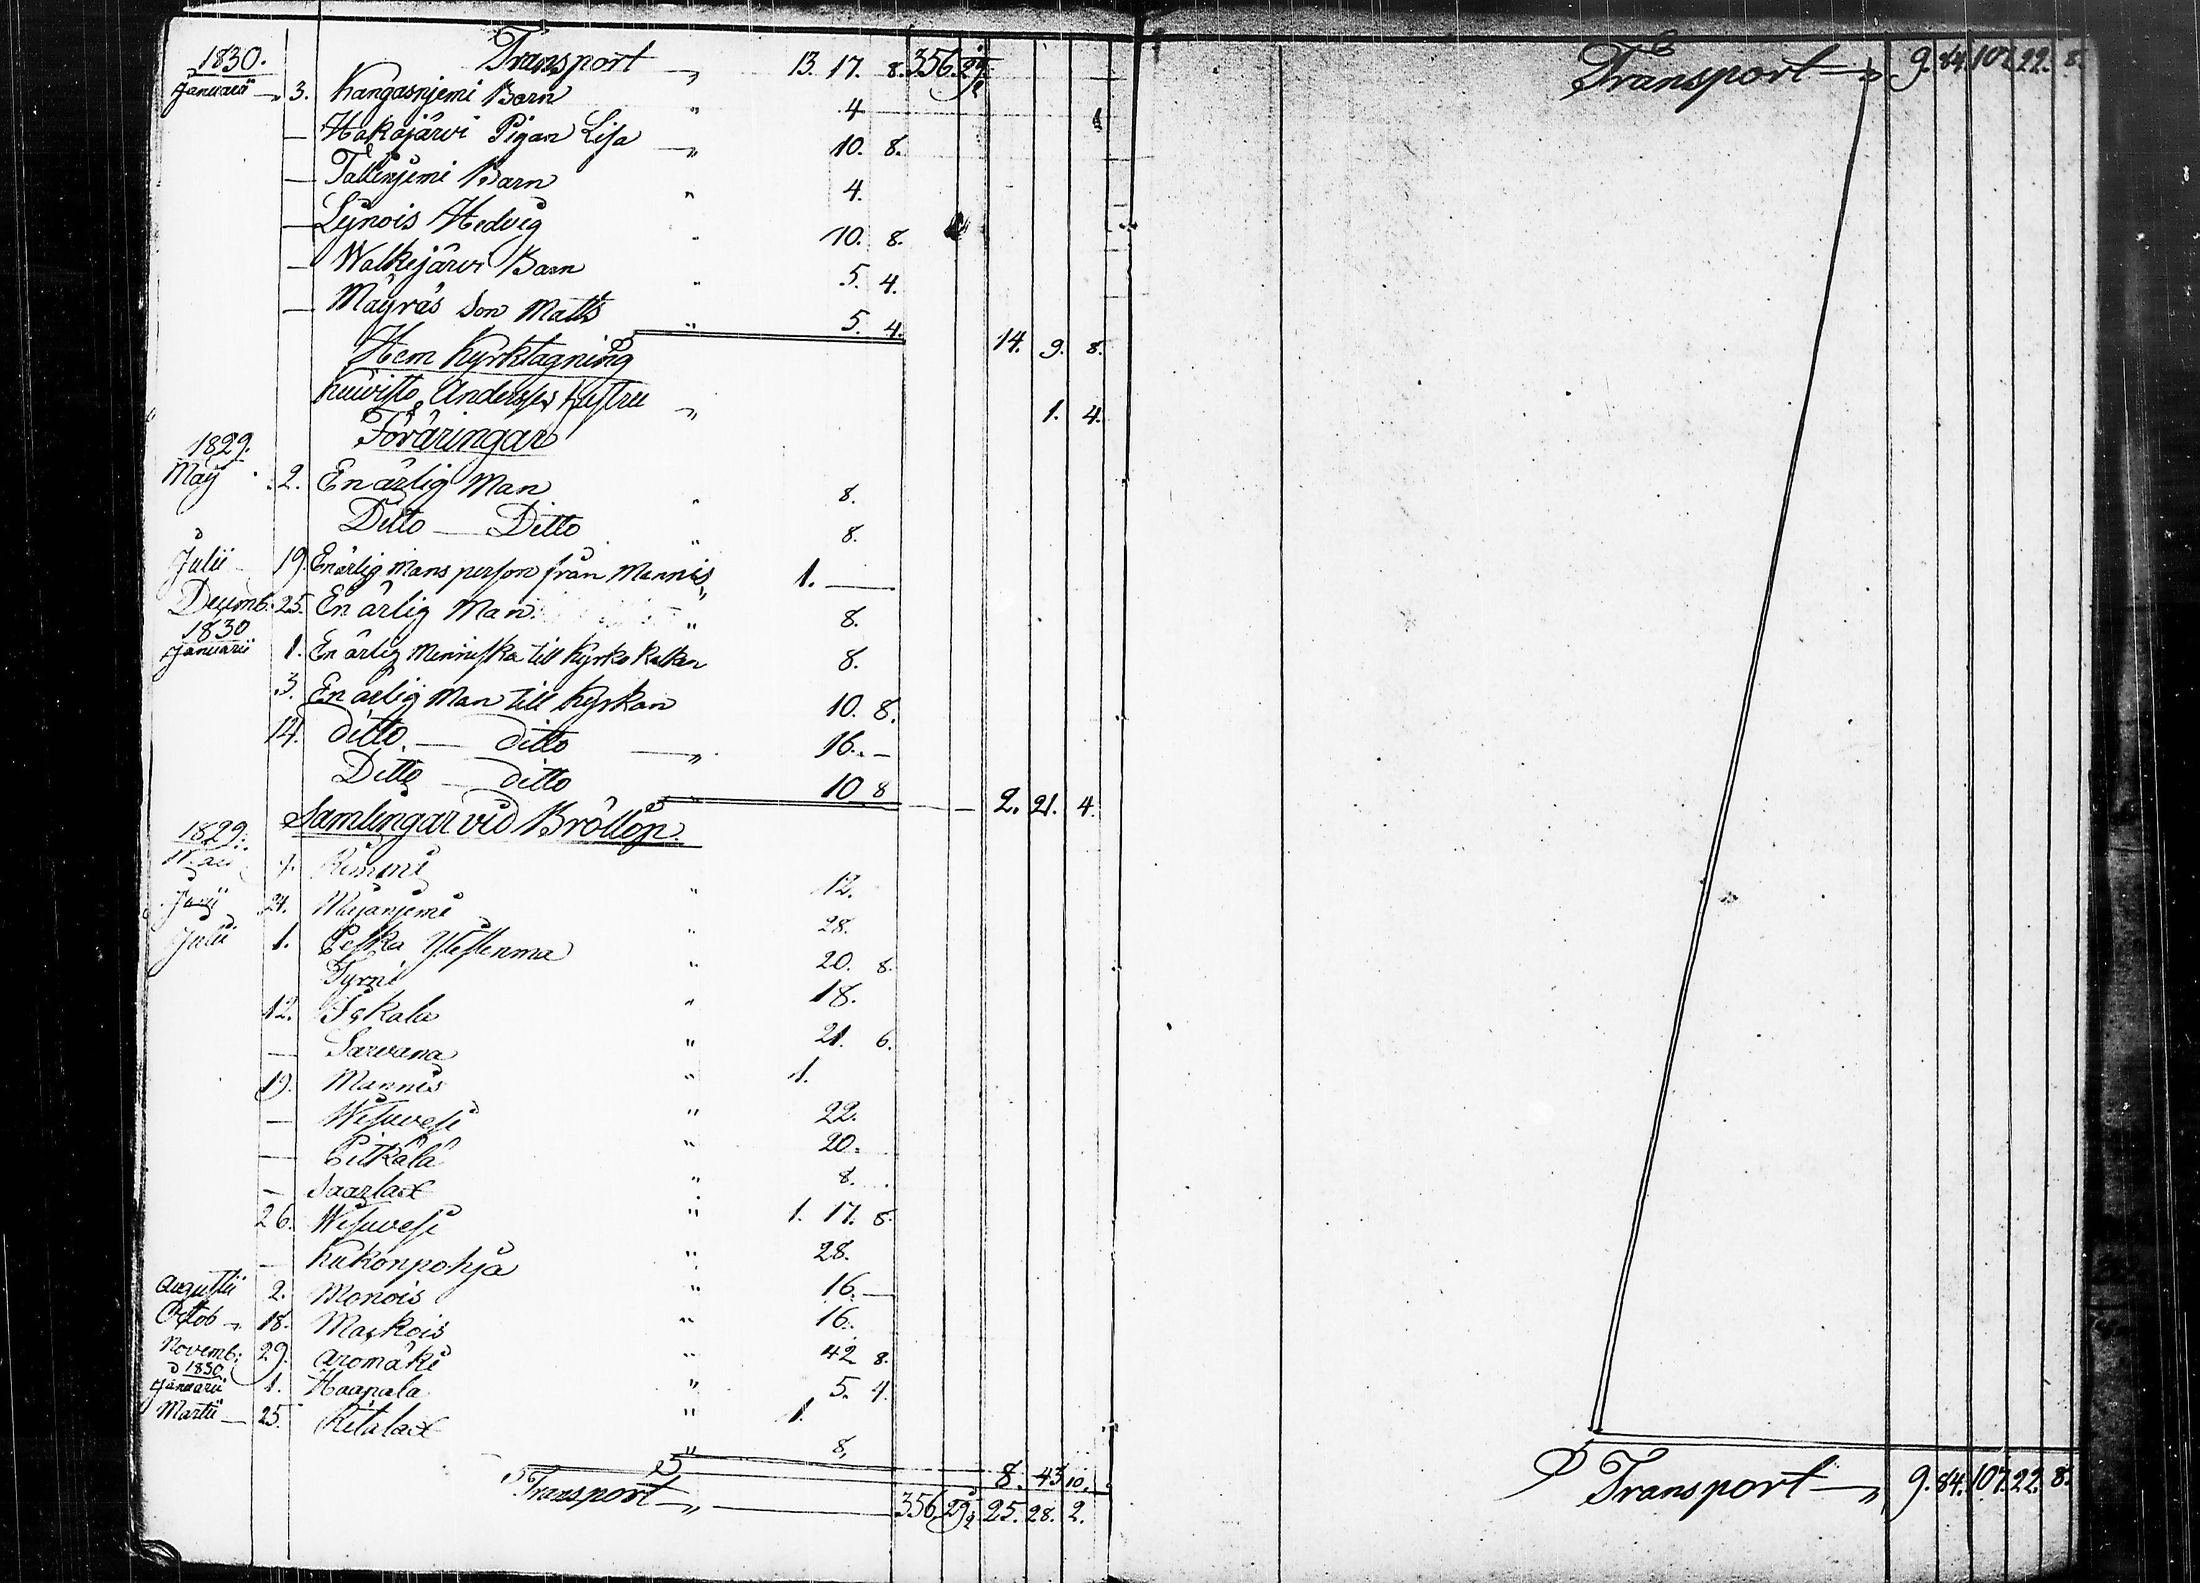 1830. Transport „ 13. 17. 8. 356. 29 1/2
Januarii „ 3. Kangasnjemi Barn „ 4
— Hakajärvi Pigan Lisa „ 10. 8.
— Tallinjemi Barn „ 4.
— Lynois Hedvig „ 10. 8.
— Walkejärvi Barn „ 5. 4.
— Mäyräs Son Matts „ 5. 4. 14. 9. 8.
Hem Kyrktagning
Kuivisto Anderss hustru „ 1. 4.
Föräringar
1829.
Maij 2. En ärlig Man „ 8.
Ditto — Ditto „ 8.
Julii 19. En ärlig Mans person från Mannis „ 1. —
Decemb: 25. En ärlig Man. „ 8.
1830
Januarii 1. En ärlig Menniska till Kyrko kalken 8.
3. En ärlig Man till Kyrkan 10. 8.
14. ditto — ditto — „ 16. —
Ditto — ditto „ 10 8 — 2. 21. 4.
Samlingar vid Bröllop.
1829.
Rimmi „ 12.
Junii 24. Miejanjemi „ 28.
Julii 1. Peska „ 20. 8.
Tyrni „ 18.
12. Iskala „ 21. 6.
— Sarvana „ 1.
19. Mannis „ 22.
— Wisuvesi „ 20.
— Pitkälä „ 8.
— Saarlax „ 1. 17. 8.
26. Wisuvesi „ 28.
— Kukonpohja „ 16. —
Augustii 2. Monois „ 16.
Octob „ 18. Maskois „ 42 8.
Novemb: 29. Aromäki „ 5. 4.
1830
Januarii 1. Haapala „ 1.
Martii — 25. Ritalax „ 8. 8. 43 10.
Transport „ — 356. 29 1/2 25. 28. 2.
Transport — „ 9. 84. 107. 22. 8.
Transport — „ 9. 84. 107. 22. 8.